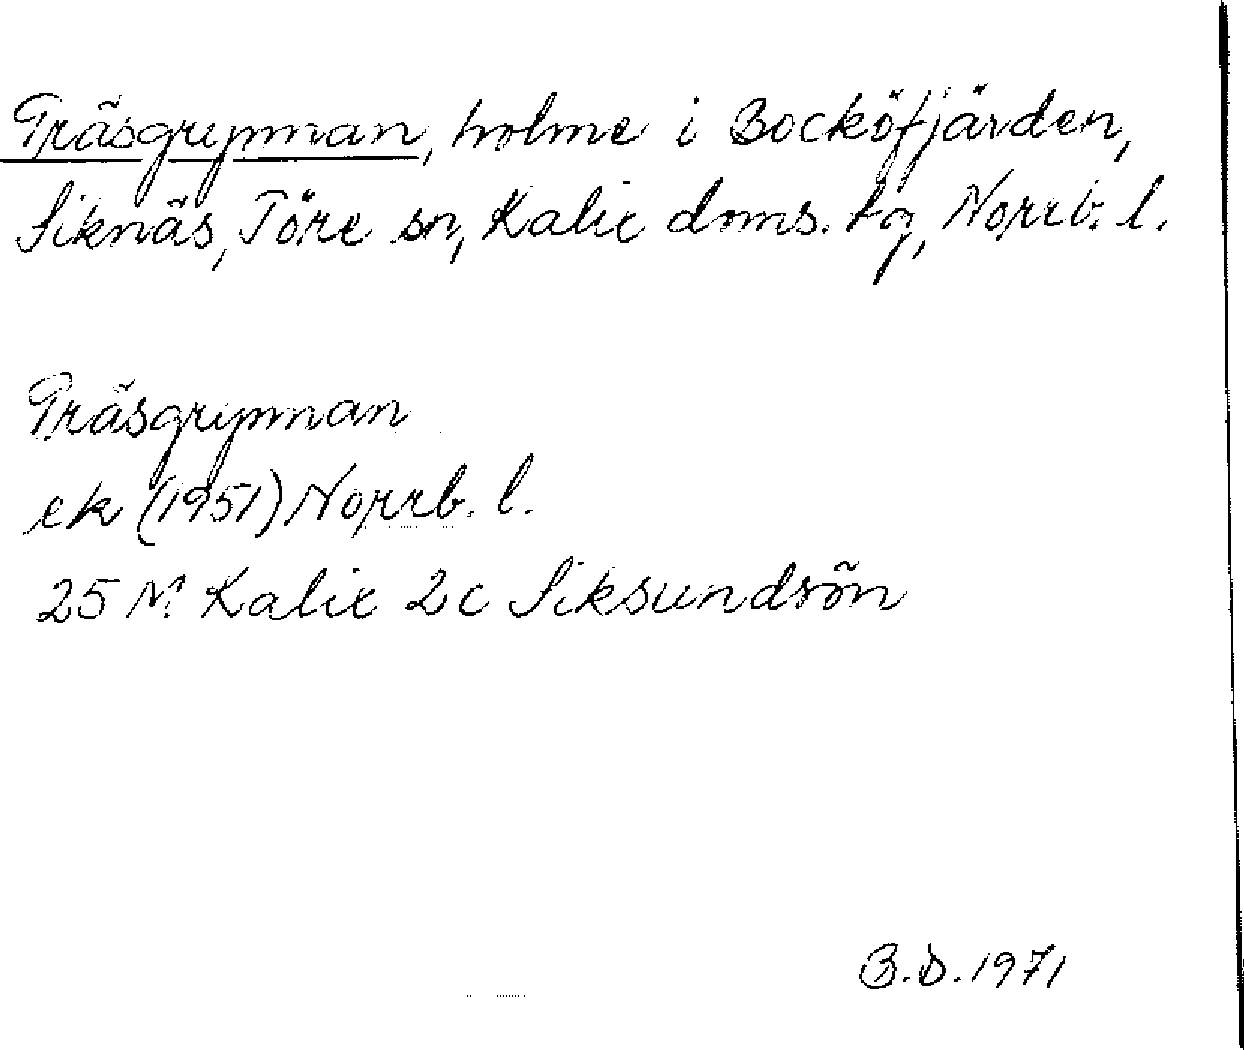 Träsgrynnan, holme i Bocköfjärden,
Siknäs, Töre sn, Kalix doms. tg, Norrb. l.
Träsgrynnan
ek (1951) Norrb. l.
25 M Kalix 2c Siksundsön
B.D. 1971